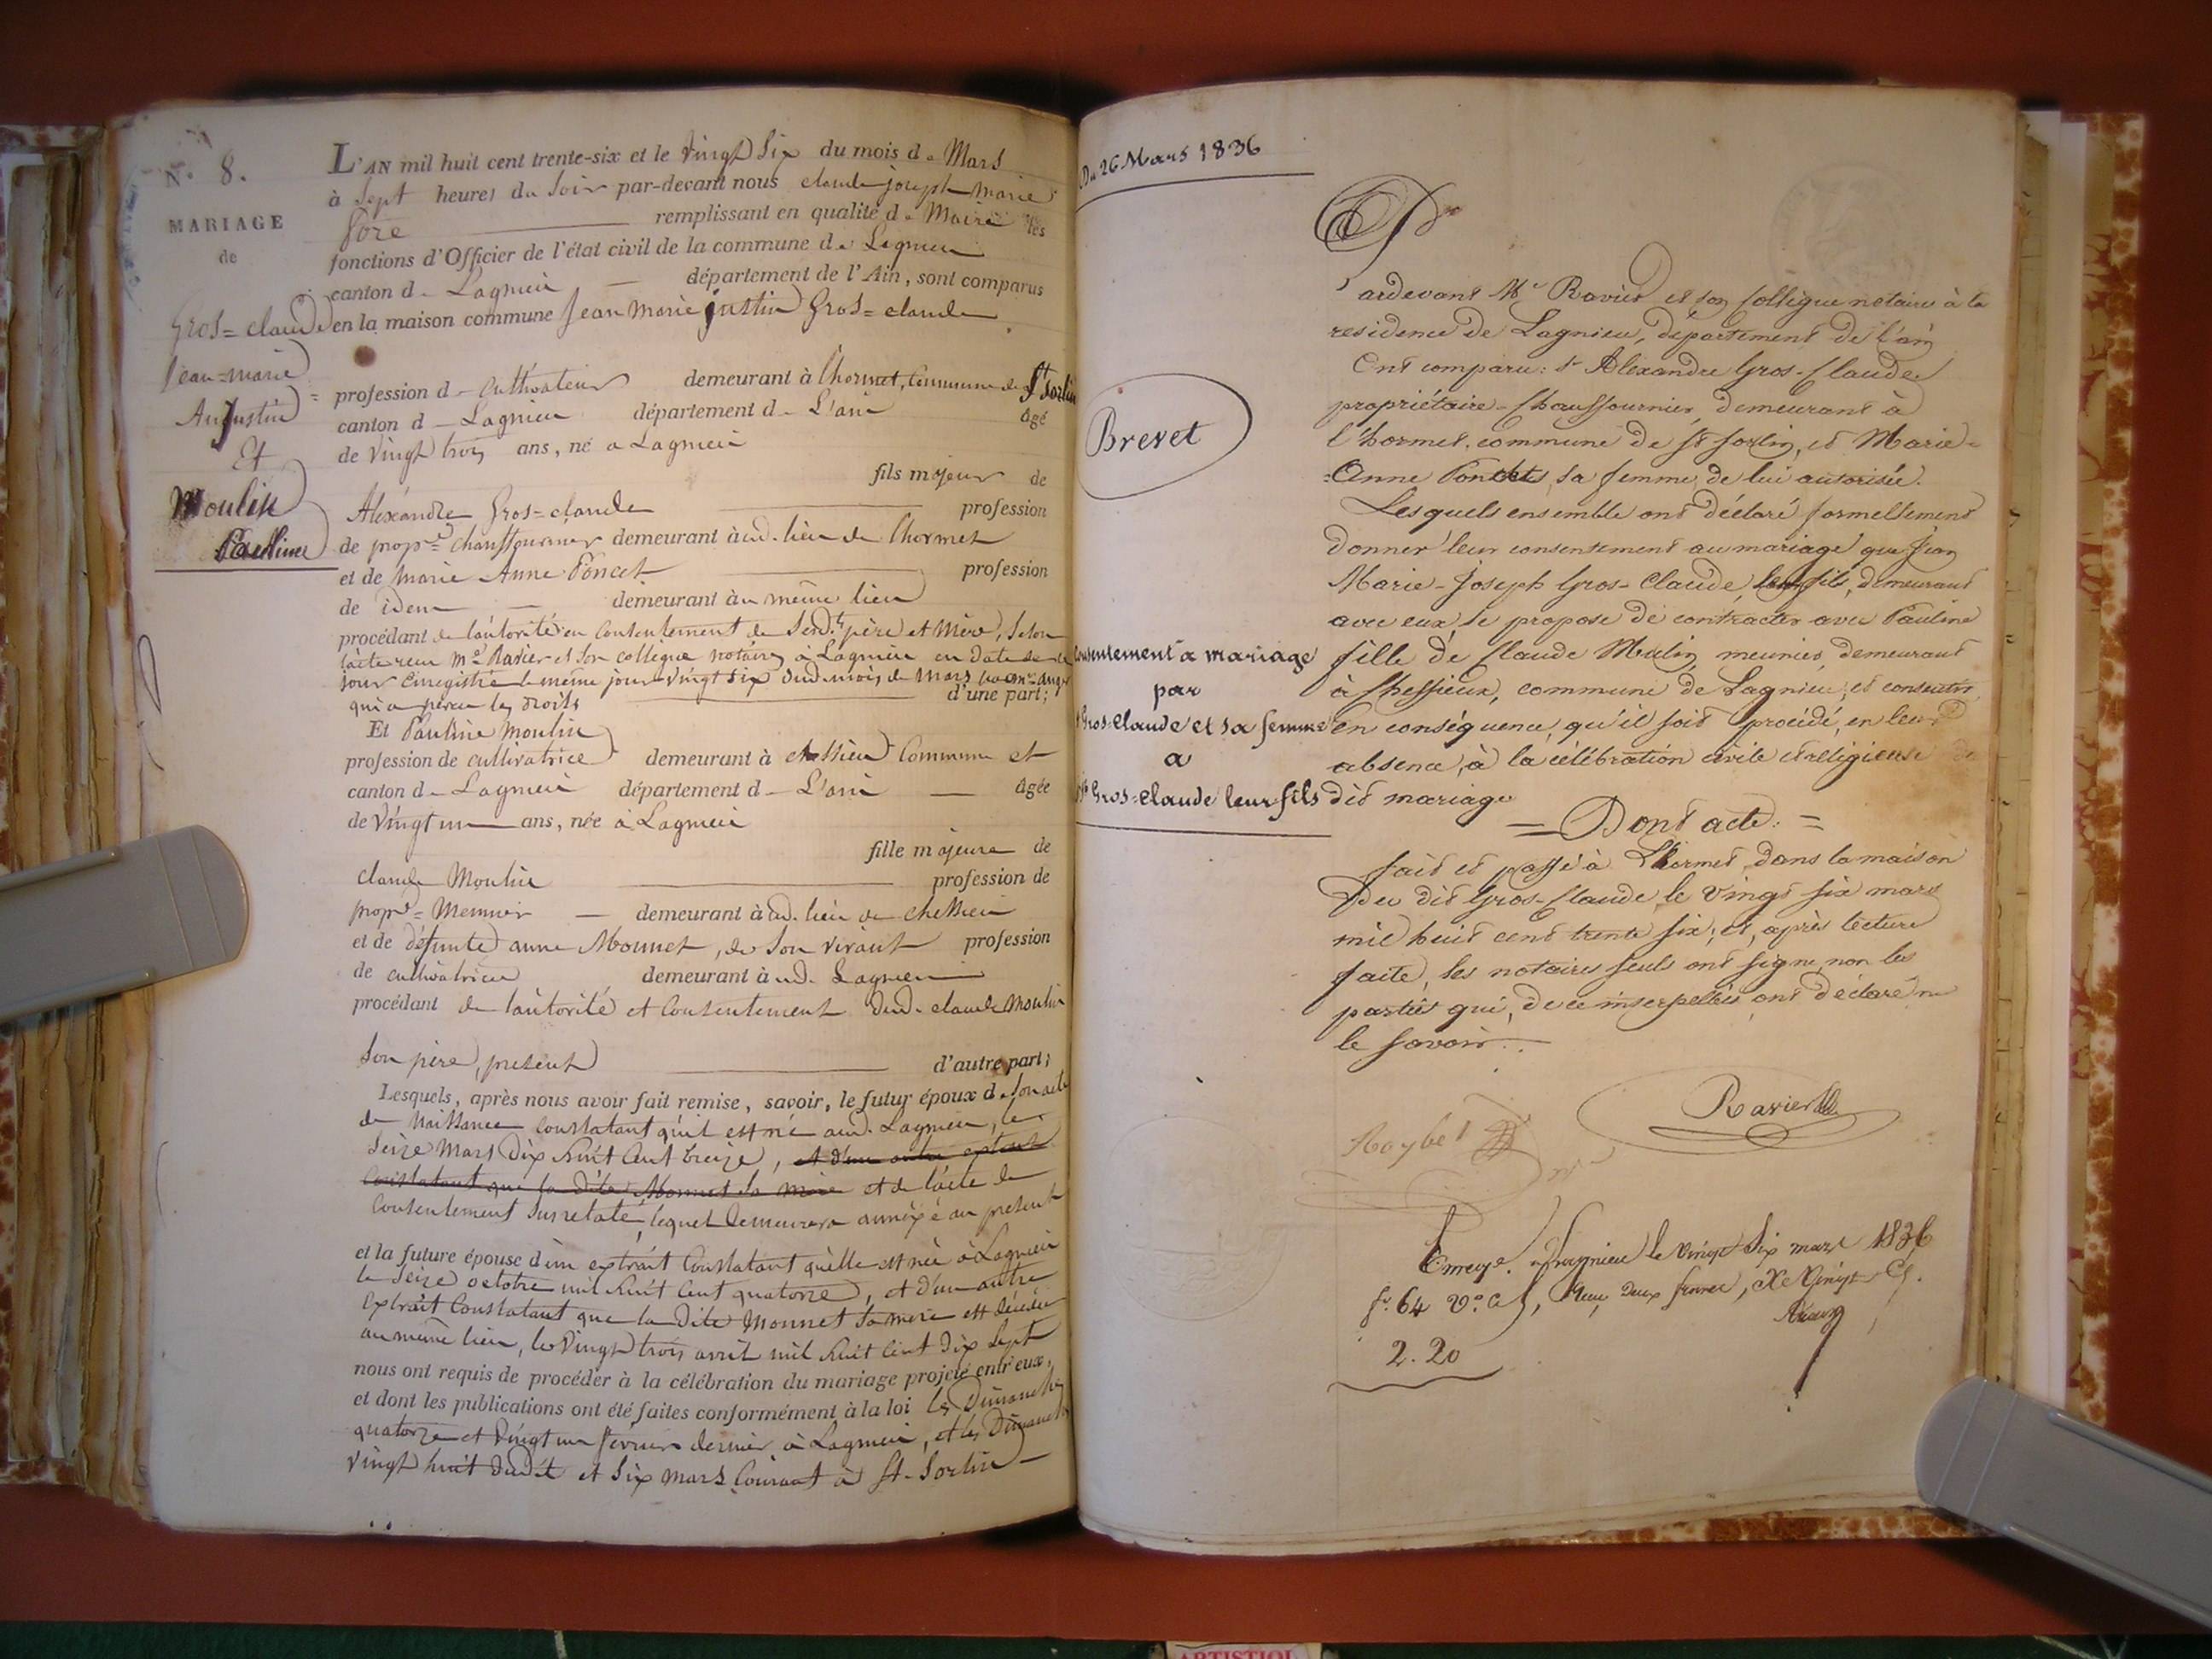 N.° 8.
MARIAGE
de
Gros=claude
Jean=marie
Augustin
Et
Moulin
Pauline
L'AN mil huit cent trente-six et le vingt Six du mois de Mars
à Sept heures du Soir par-devant nous claude joseph marie
remplissant en qualité de Maire les
fonctions d'Officier de l'état civil de la commune de Lagnieu
canton de Lagnieu département de l'Ain, sont comparus
en la maison commune Jean marie justin Gros=claude
profession de cultivateur demeurant à Lhormet, Commune de St Sorlin
canton de Lagnieu département de L'ain âgé
de vingt trois ans, né à Lagnieu
fils majeur de
Alexandre Gros=claude profession
de propre. chauffournier demeurant à ud. lieu de Lhormet
et de Marie Anne Poncet profession
de idem demeurant au même lieu
procédant de l'autorité en Consentement de Sesd.ts père et Mère, Selon
l'acte reçu Me. Ravier et Son collegue notaires à Lagnieu en Date de ce
jour Enregistré le même jour vingt six dud. mois de Mars
qui a perçu les droits d'une part;
Et Pauline Moulin
profession de cultivatrice demeurant à chessieu Commune et
canton de Lagnieu département de L'ain âgée
de vingt un ans, née à Lagnieu
fille majeure de
claude Moulin profession de
propre.= Meunier demeurant à ud. lieu de chessieu
et de défunte anne Monnet, de Son vivant profession
de cultivatrice demeurant à ud. Lagnieu
procédant de l'autorité et Consentement dud. claude Moulin
Son père, présent d'autre part;
Lesquels, après nous avoir fait remise, savoir, le futur époux de Son acte
de Naissance Constatant qu'il est né aud. Lagnieu, le
Seize Mars dix huit Cent treize, et d'un autre extrait
Constatant que la dite Monnet Sa mère et de l'acte de
Consentement Susrelaté, lequel demeurera annéxé au présent
et la future épouse d'un extrait Constatant qu'elle est née à Lagnieu
le Seize octobre mil huit Cent quatorze, et d'un autre
extrait Constatant que la dite Monnet Sa mère est décédée
au même lieu, le vingt trois avril mil huit Cent dix Sept
nous ont requis de procéder à la célébration du mariage projeté entr'eux,
et dont les publications ont été faites conformément à la loi les Dimanches
quatorze et vingt un fevrier dernier à Lagnieu, et les Dimanches
vingt huit dudit et Six mars Courant à St-Sorlin
Du 26 Mars 1836
Brevet
Consentement à mariage
par
Gros-Claude et sa femme
a
Gros-Claude leur fils
Pardevant Me Ravier et son Collègue notaires à la
residence de Lagnieu, département de l'ain
Ont comparu: Sr Alexandre Gros-Claude
propriétaire-Chauffournier, demeurant à
l'hormet, commune de St Sorlin, et Marie-
=Anne Poncet, sa femme, de lui autorisée.
Lesquels ensemble ont déclaré formellement
donner leur consentement au mariage que Jean
Marie-Joseph Gros-Claude, leur fils, demeurant
avec eux, se propose de contracter avec Pauline
fille de Claude Mulin, meunier, demeurant
à Chessieux, commune de Lagnieu; et consentir
en conséquence, qu'il soit procédé, en leur
absence, à la célébration civile et religieuse du
dit mariage
= Dont acte. =
fait et passé à Lhormet, dans la maison
Du dit Gros-Claude, le vingt six mars
mil huit cent trente six; et, après lecture
faite, les notaires seuls ont signé, non les
parties qui, de ce interpellés, ont déclaré ne
le savoir.
Ravier
Roybet
Enregé. à Lagnieu le vingt Six mars 1836
fo. 64 Vo. C 5, Reçu deux francs, Xe Vingt C.
2.20